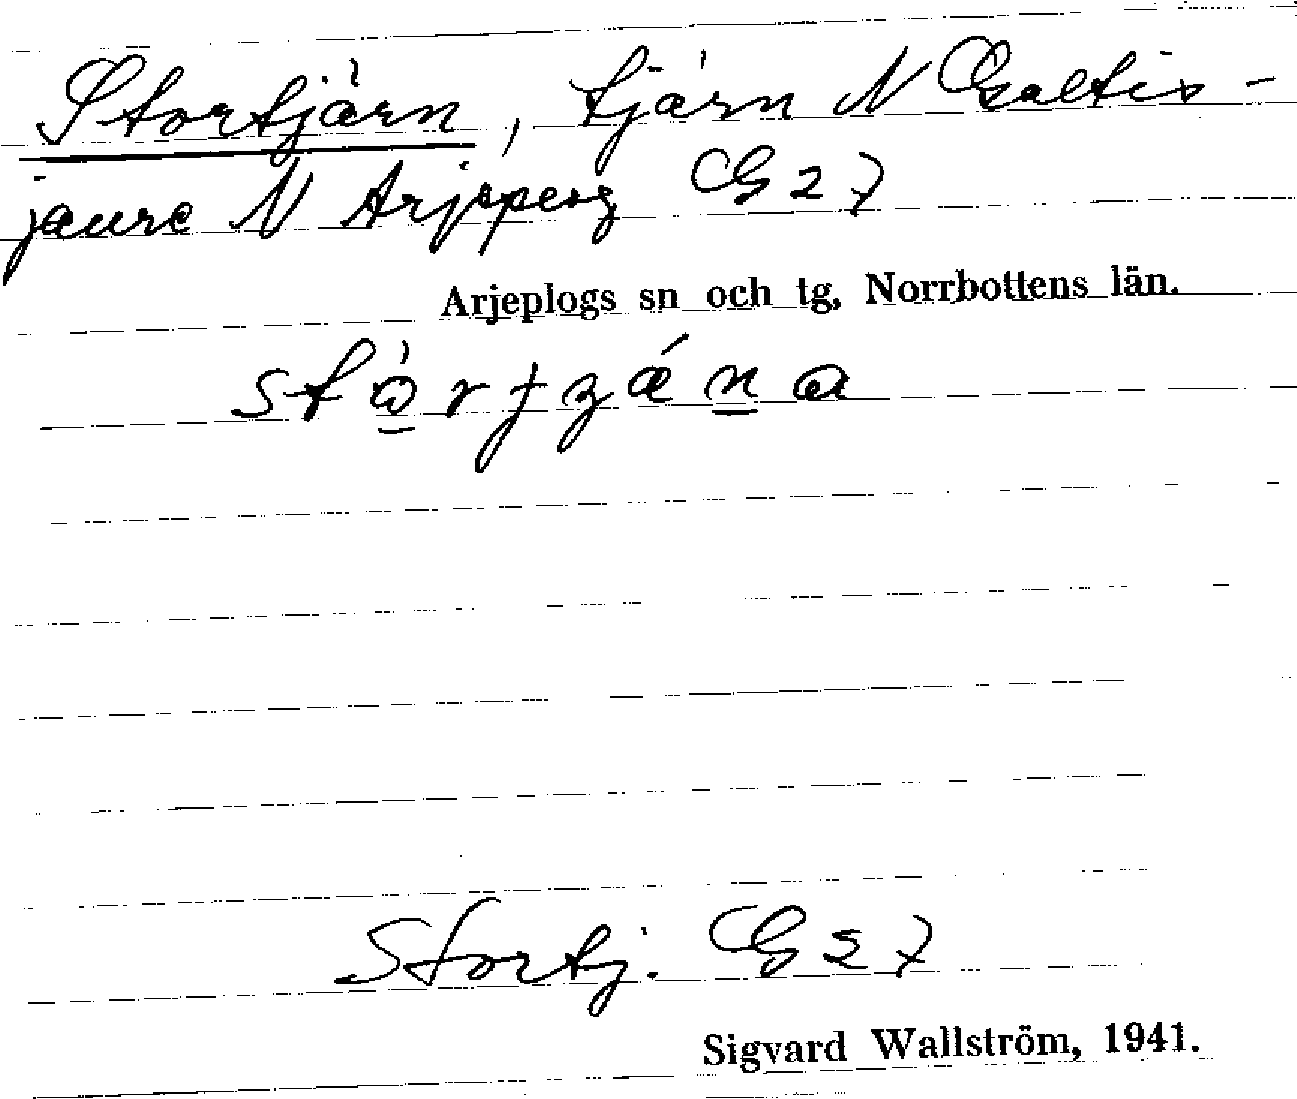 Stortjärn, tjärn N Galtis-
jaure N Arjepeog G 27
Arjeplogs sn och tg, Norrbottens län.
Stortj. G 27
Sigvard Wallström, 1941.